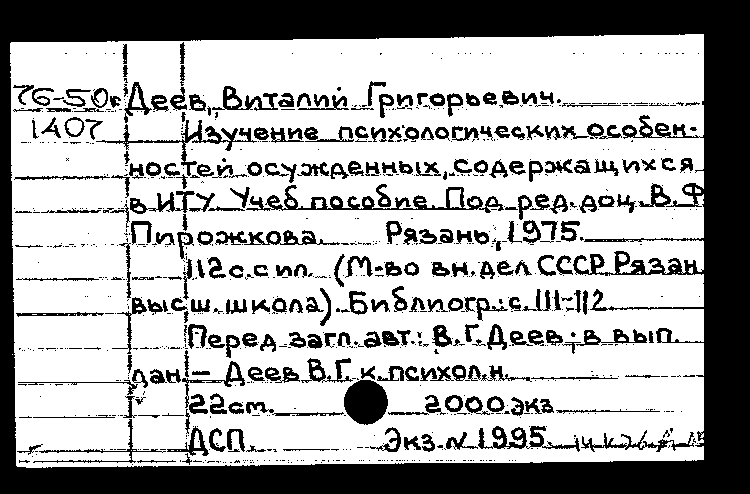 76-50к Деев, Виталий Григорьевич.
1407 Изучение психологических особен-
ностей осужденных, содержащихся
в ИТУ. Учеб. пособие. Под ред. доц. В.Ф.
Пирожкова. Рязань, 1975.
112 с. с ил. (М-во вн. дел СССР. Рязан.
высш. школа). Библиогр.: с. 111-112.
Перед загл. авт.: В.Г. Деев; в вып.
дан. — Деев В.Г. к. психол. н.
22 см. 2000 экз.
ДСП. Экз. № 1995.